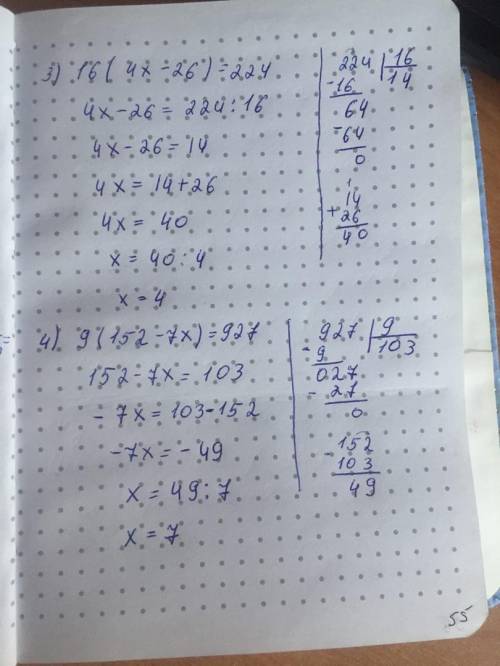 3) 16(4x-26)=224
4x-26=224:16
4x-26=14
4x=14+26
4x=40
x=40:4
x=4
224 16
-16 14
64
-64
0
1
14
+26
40
4) 9(152-7x)=927
152-7x=103
-7x=103-152
-7x=-49
x=49:7
x=7
927 9
-9 103
027
-27
0
-152
103
49
55